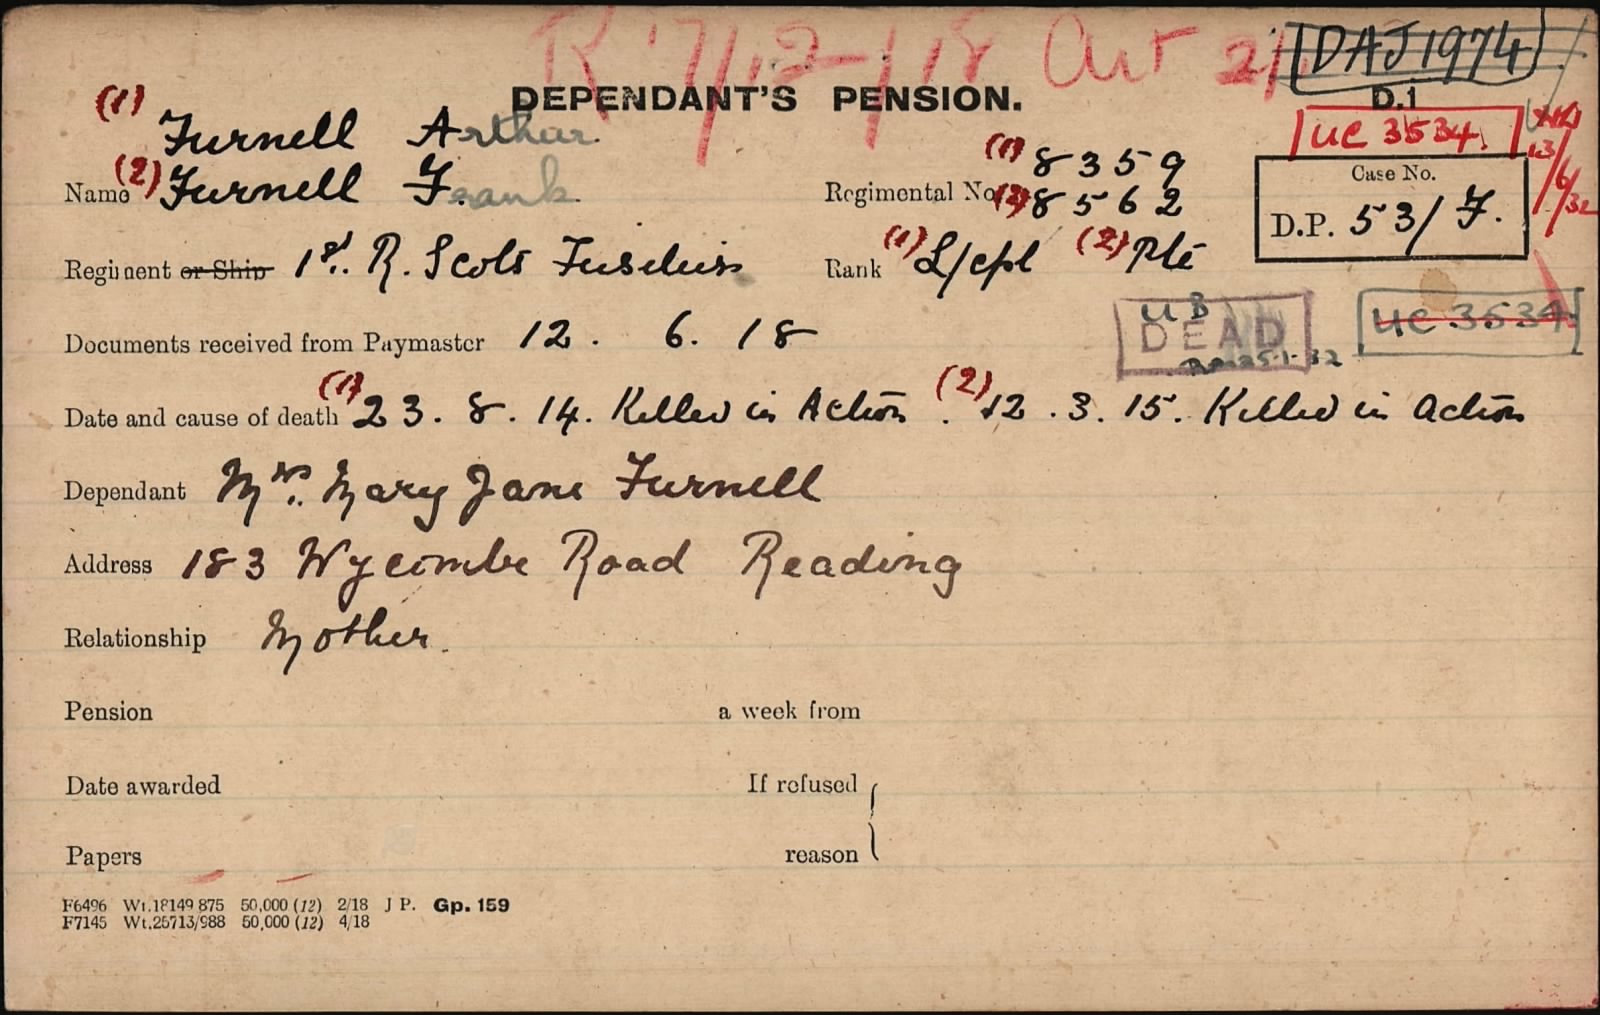 R 17/12/18 Art 21
DAJ 1974
DEPENDANT'S PENSION.
D.1
UC 3534.
13/6/32
(1) Furnell Arthur.
Name (2) Furnell Frank.
Regimental No. (1) 8359
(2) 8562
Case No.
D.P. 53/F.
Regiment or Ship 1st. R. Scots Fusiliers
Rank (1) L/cpl (2) Pte
UB
DEAD
25-1-32
UC 3534
Documents received from Paymaster 12. 6. 18
Date and cause of death (1) 23. 8. 14. Killed in Action. (2) 12. 3. 15. Killed in action
Dependant Mrs. Mary Jane Furnell
Address 183 Wycombe Road Reading
Relationship Mother.
Pension a week from
Date awarded If refused
Papers reason
F6496 Wt.18149 875 50,000 (12) 2/18 J P. Gp. 159
F7145 Wt.25713/988 50,000 (12) 4/18